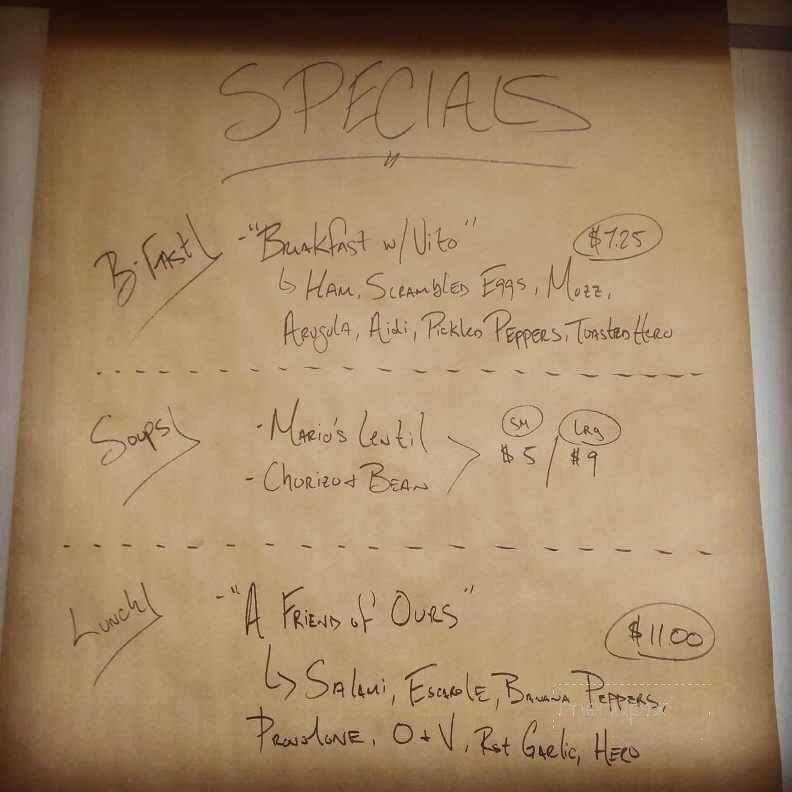 SPECIALS
B-FAST
- "BREAKFAST w/ VITO" $7.25
HAM, SCRAMBLED EGGS, MOZZ,
ARUGULA, AIOLI, PICKLED PEPPERS, TOASTED HERO
SOUPS
- MARIO'S LENTIL
- CHORIZO + BEAN
SM LRG
$5 / $9
LUNCH
- "A FRIEND OF OURS" $11.00
SALAMI, ESCAROLE, BANANA PEPPERS,
PROVOLONE, O + V, RST GARLIC, HERO